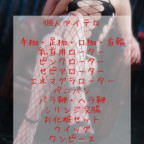 個人アイテム
手枷・足枷・口枷・首輪
乳首用ローター
ピンクローター
セピアローター
エネマグラローター
タニバン
バラ鞭・ヘラ鞭
シリンジ浣腸
お化粧セット
ウイッグ
ワンピース